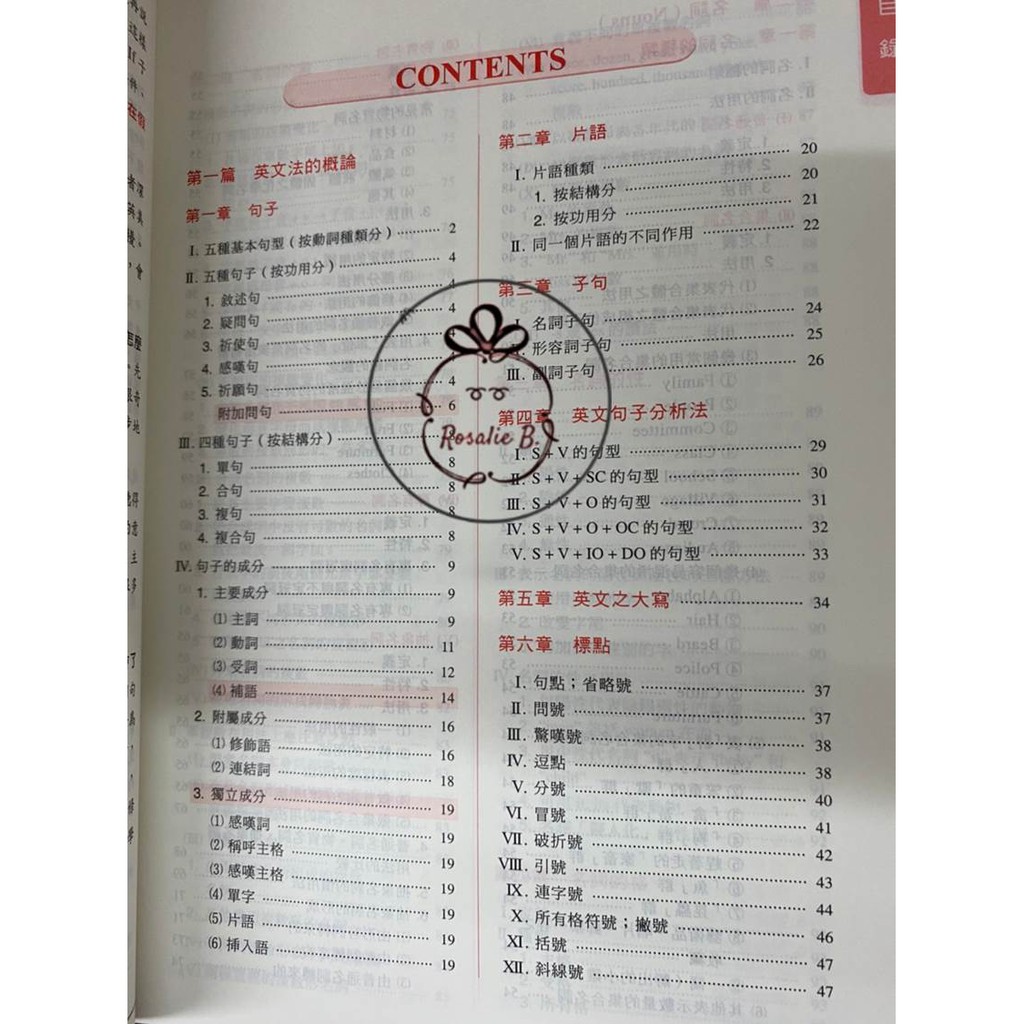 目
錄
CONTENTS
第一篇 英文法的概論
第一章 句子
I. 五種基本句型（按動詞種類分） 2
II. 五種句子（按功用分） 4
1. 敘述句 4
2. 疑問句 4
3. 祈使句 4
4. 感嘆句 4
5. 祈願句 4
附加問句 6
III. 四種句子（按結構分） 8
1. 單句 8
2. 合句 8
3. 複句 8
4. 複合句 8
IV. 句子的成分 9
1. 主要成分 9
(1) 主詞 9
(2) 動詞 11
(3) 受詞 12
(4) 補語 14
2. 附屬成分 16
(1) 修飾語 16
(2) 連結詞 18
3. 獨立成分 19
(1) 感嘆詞 19
(2) 稱呼主格 19
(3) 感嘆主格 19
(4) 單字 19
(5) 片語 19
(6) 插入語 19
第二章 片語
I. 片語種類 20
1. 按結構分 20
2. 按功用分 21
II. 同一個片語的不同作用 22
第三章 子句
I. 名詞子句 24
II. 形容詞子句 25
III. 副詞子句 26
第四章 英文句子分析法
I. S + V 的句型 29
II. S + V + SC 的句型 30
III. S + V + O 的句型 31
IV. S + V + O + OC 的句型 32
V. S + V + IO + DO 的句型 33
第五章 英文之大寫 34
第六章 標點
I. 句點；省略號 37
II. 問號 37
III. 驚嘆號 38
IV. 逗點 38
V. 分號 40
VI. 冒號 41
VII. 破折號 42
VIII. 引號 43
IX. 連字號 44
X. 所有格符號；撇號 46
XI. 括號 47
XII. 斜線號 47
Rosalie B.